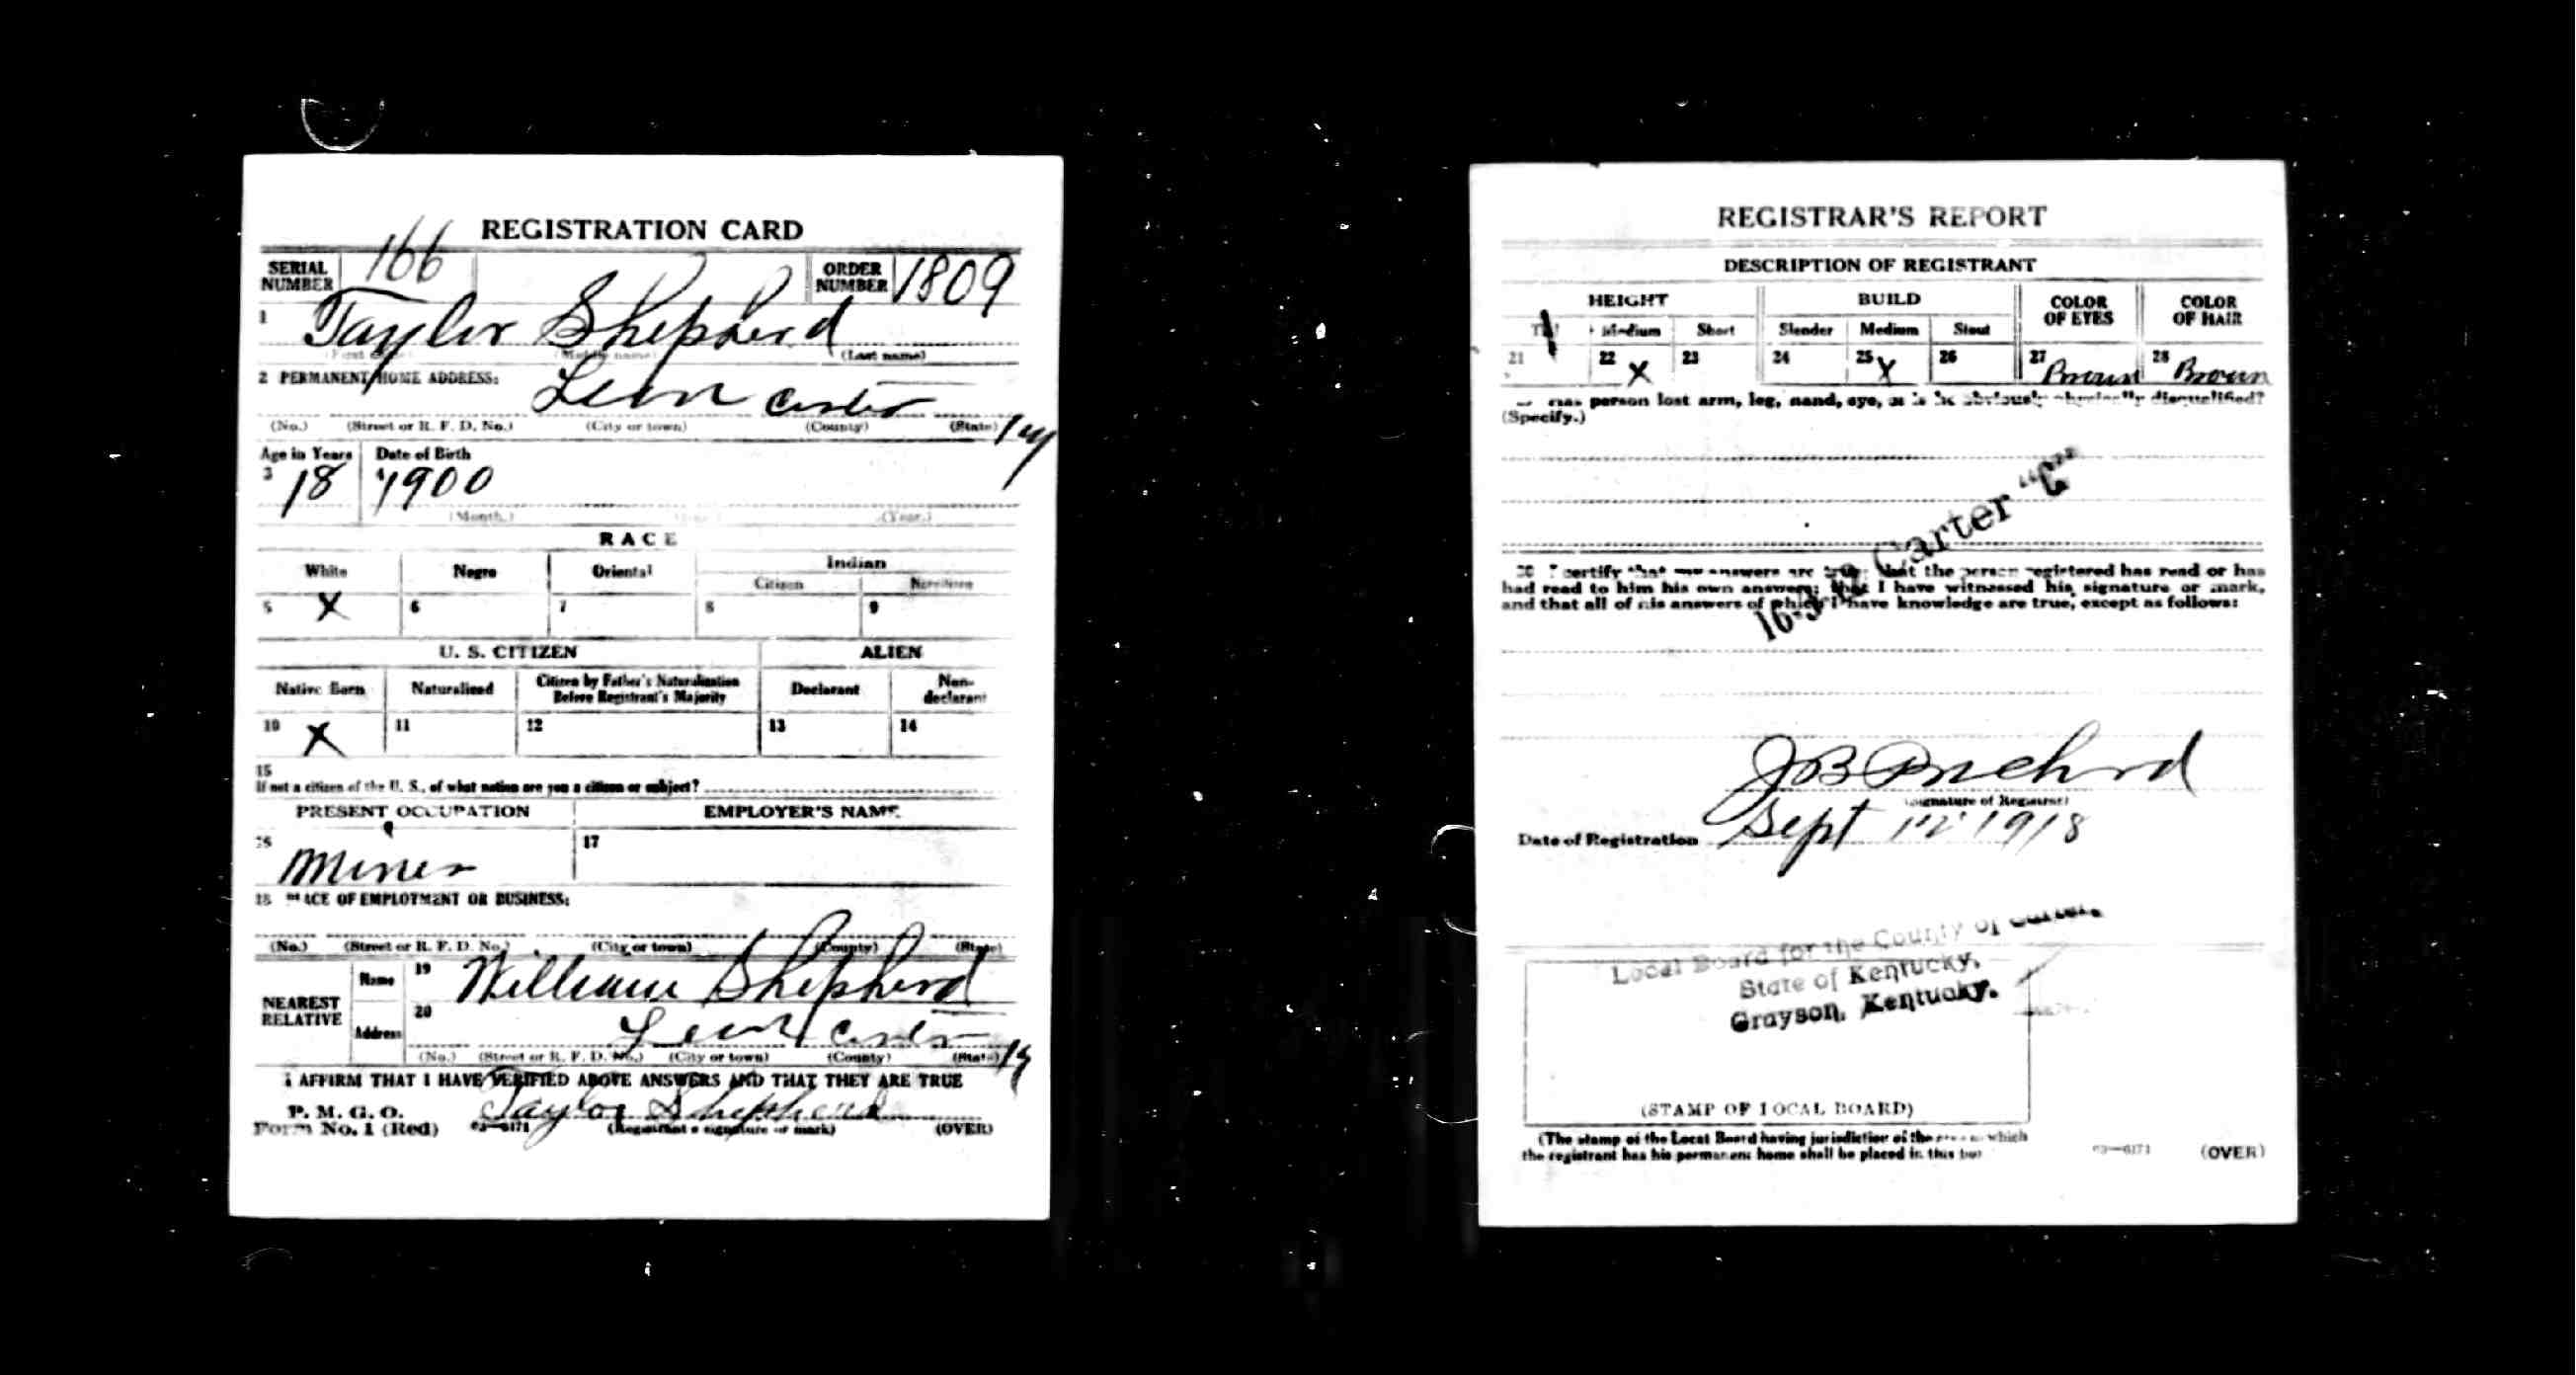 REGISTRATION CARD
SERIAL NUMBER 166 ORDER NUMBER 1809
1 Taylor Shepherd
(First name) (Middle name) (Last name)
2 PERMANENT HOME ADDRESS:
Leon Carter Ky
(No.) (Street or R. F. D. No.) (City or town) (County) (State)
Age in Years Date of Birth
3 18 4 1900
(Month.) (Day.) (Year.)
RACE
White Negro Oriental Indian
Citizen Noncitizen
5 X 6 7 8 9
U. S. CITIZEN ALIEN
Native Born Naturalized Citizen by Father's Naturalization Before Registrant's Majority Declarant Non-declarant
10 X 11 12 13 14
15
If not a citizen of the U. S., of what nation are you a citizen or subject?
PRESENT OCCUPATION EMPLOYER'S NAME
16 Miner 17
18 PLACE OF EMPLOYMENT OR BUSINESS:
(No.) (Street or R. F. D. No.) (City or town) (County) (State)
NEAREST RELATIVE
Name 19 William Shepherd
Address 20 Leon Carter Ky
(No.) (Street or R. F. D. No.) (City or town) (County) (State)
I AFFIRM THAT I HAVE VERIFIED ABOVE ANSWERS AND THAT THEY ARE TRUE
P. M. G. O.
Form No. 1 (Red) 03—6171 Taylor Shepherd
(Registrant's signature or mark) (OVER)
REGISTRAR'S REPORT
DESCRIPTION OF REGISTRANT
HEIGHT BUILD COLOR OF EYES COLOR OF HAIR
Tall Medium Short Slender Medium Stout
21 22 X 23 24 25 X 26 27 Brown 28 Brown
Has person lost arm, leg, hand, eye, or is he obviously physically disqualified?
(Specify.)
Carter "C"
30 I certify that my answers are true; that the person registered has read or has
had read to him his own answers; that I have witnessed his signature or mark,
and that all of his answers of which I have knowledge are true, except as follows:
J B Prichard
(Signature of Registrar)
Date of Registration Sept 12 1918
Local Board for the County of Carter,
State of Kentucky,
Grayson, Kentucky.
(STAMP OF LOCAL BOARD)
(The stamp of the Local Board having jurisdiction of the area in which
the registrant has his permanent home shall be placed in this box
03—6171 (OVER)